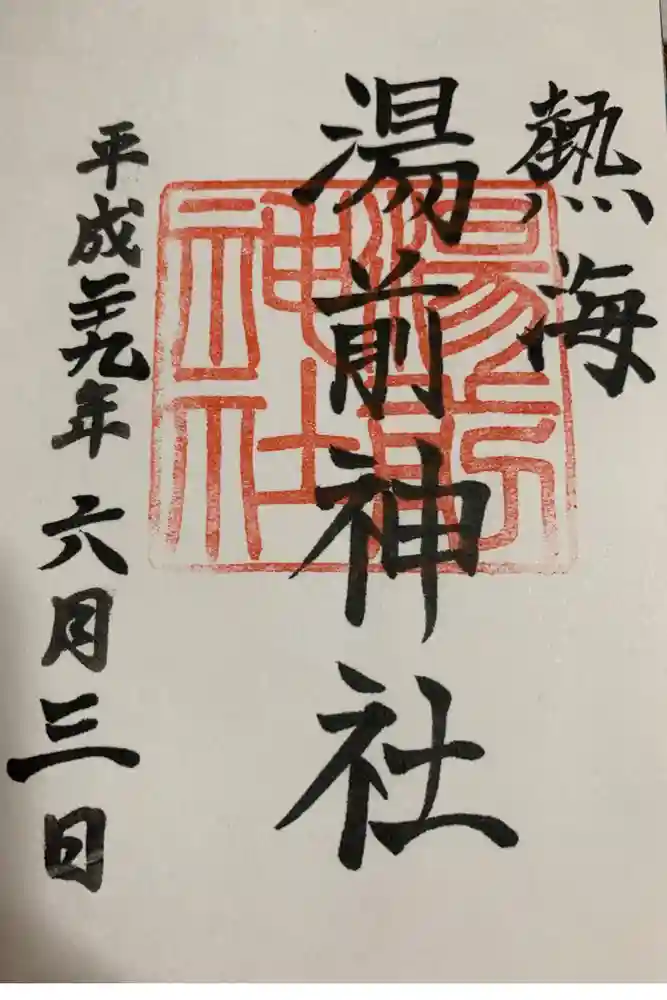 熱海
湯前神社
平成二十九年六月三日
湯前神社